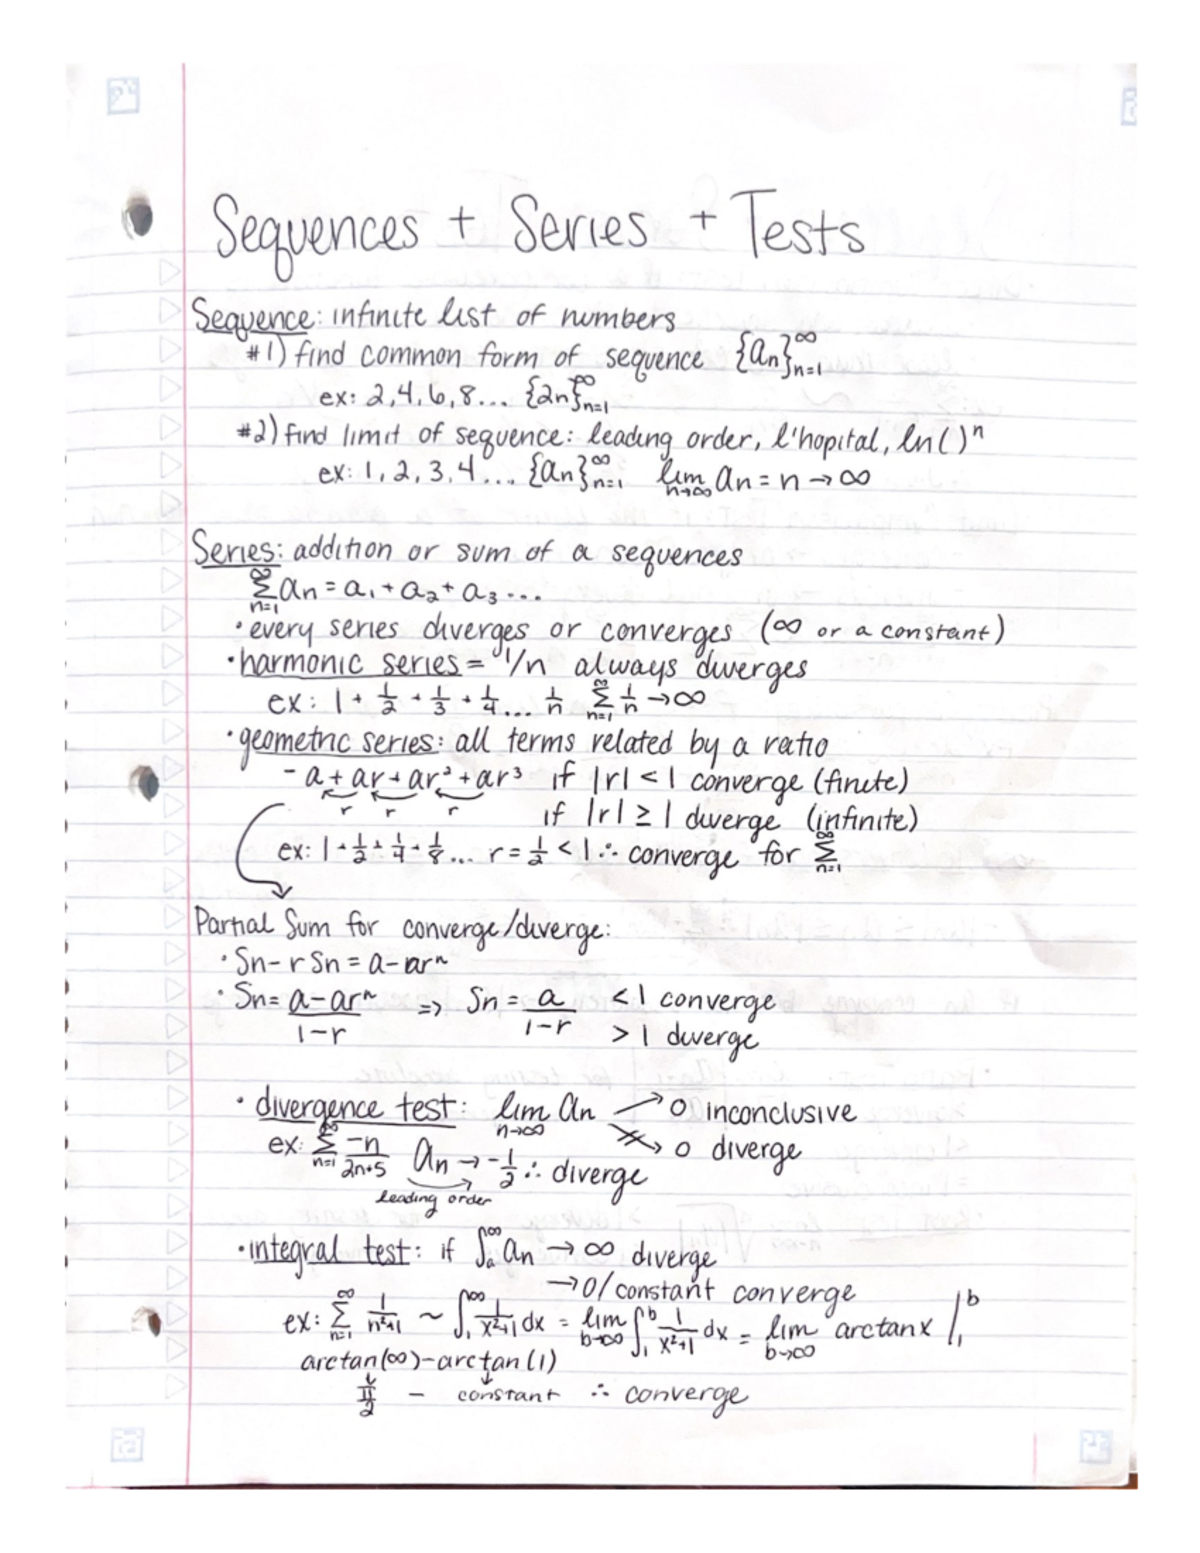 Sequences + Series + Tests
Sequence: infinite list of numbers
#1) find common form of sequence {an}∞n=1
ex: 2,4,6,8... {2n}∞n=1
#2) find limit of sequence: leading order, l'hopital, ln( )ⁿ
ex: 1, 2, 3, 4... {an}∞n=1 lim n→∞ an = n → ∞
Series: addition or sum of a sequences
∞Σn=1 an = a₁ + a₂ + a₃ ...
· every series diverges or converges (∞ or a constant)
· harmonic series = 1/n always diverges
ex: 1 + 1/2 + 1/3 + 1/4 ... 1/n ∞Σn=1 1/n → ∞
· geometric series: all terms related by a ratio
- a + ar + ar² + ar³ if |r| < 1 converge (finite)
r r r if |r| ≥ 1 diverge (infinite)
ex: 1 + 1/2 + 1/4 + 1/8 ... r = 1/2 < 1 ∴ converge for ∞Σn=1
Partial Sum for converge/diverge:
· Sn - r Sn = a - arⁿ
· Sn = (a - arⁿ)/(1 - r) ⇒ Sn = a/(1 - r) < 1 converge
> 1 diverge
· divergence test: lim n→∞ an → 0 inconclusive
↛ 0 diverge
ex: ∞Σn=1 -n/(2n+5) an → -1/2 ∴ diverge
leading order
· integral test: if ∫a∞ an → ∞ diverge
→ 0/constant converge
ex: ∞Σn=1 1/(n²+1) ~ ∫1∞ 1/(x²+1) dx = lim b→∞ ∫1b 1/(x²+1) dx = lim b→∞ arctanx |1b
arctan(∞) - arctan(1)
π/2 - constant ∴ converge